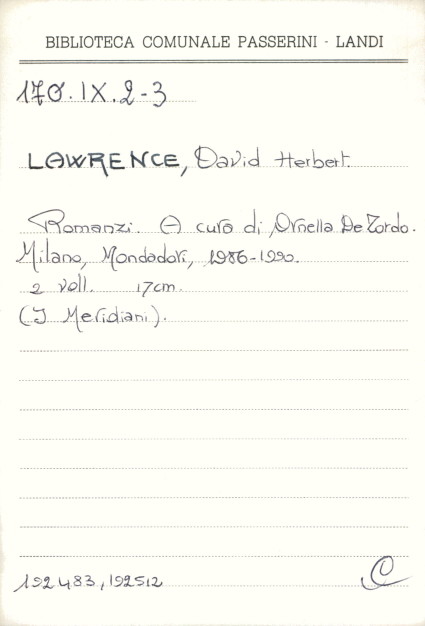 BIBLIOTECA COMUNALE PASSERINI - LANDI
170.IX.2-3
LAWRENCE, David Herbert.
Romanzi. A cura di Ornella De Zordo.
Milano, Mondadori, 1986-1990.
2 voll. 17cm.
(I Meridiani).
192483, 192512
C